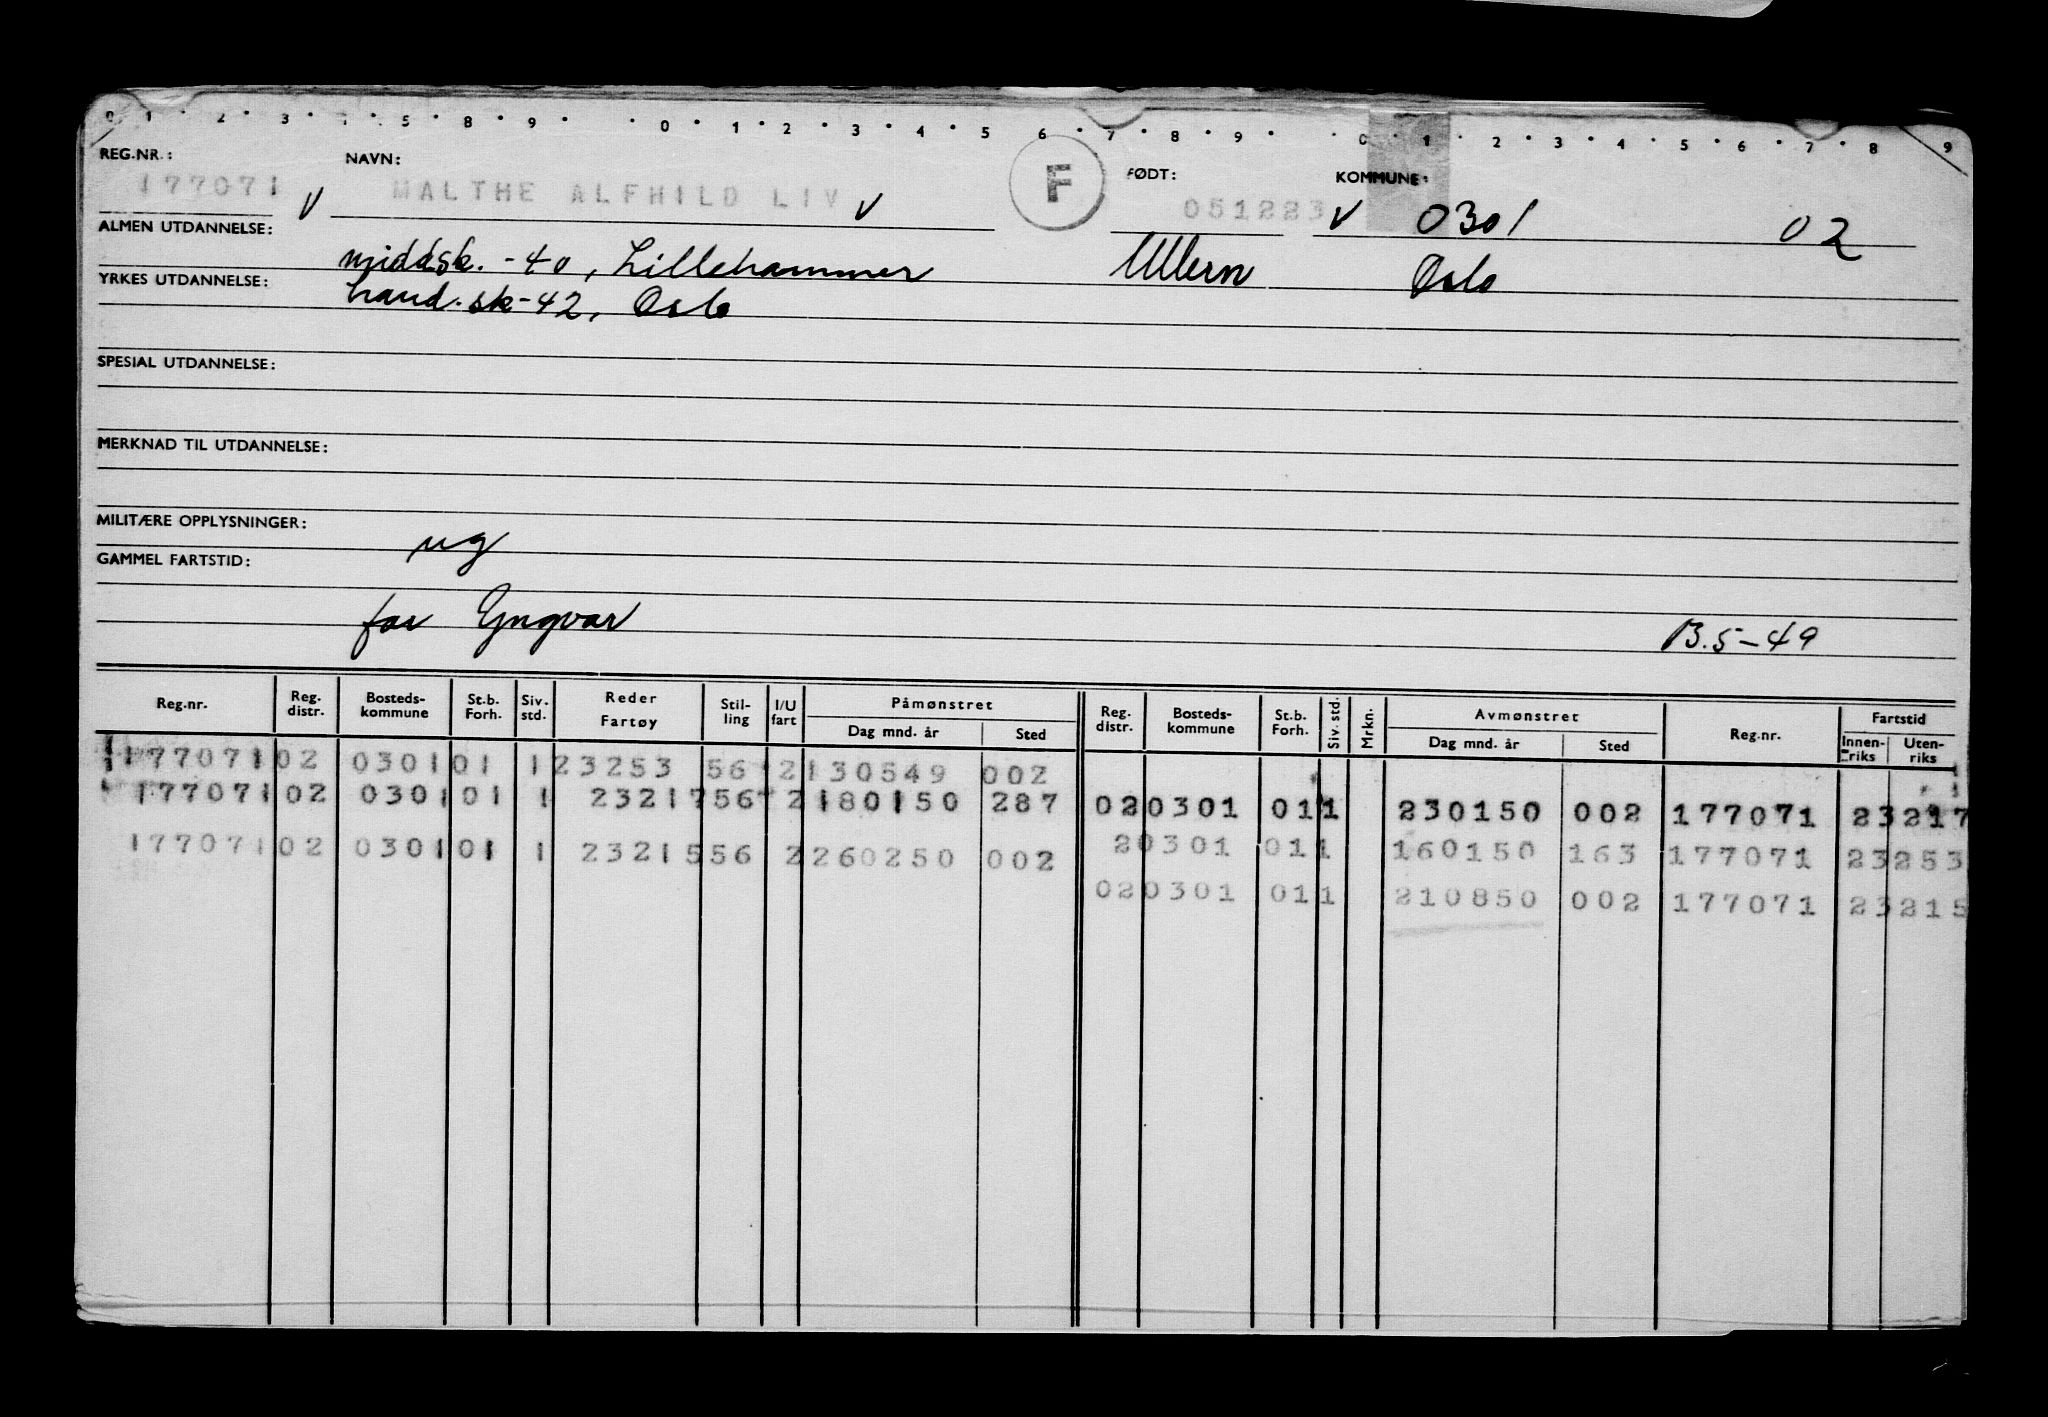 0 1 2 3 5 8 9 0 1 2 3 4 5 6 7 8 9 0 1 2 3 4 5 6 7 8 9
REG.NR.: NAVN: F FØDT: KOMMUNE:
177071 V MALTHE ALFHILD LIV V 051223 V 0301 02
ALMEN UTDANNELSE: middsk. -40, Lillehammer Ullern Oslo
YRKES UTDANNELSE: hand.sk-42, Oslo
SPESIAL UTDANNELSE:
MERKNAD TIL UTDANNELSE:
MILITÆRE OPPLYSNINGER: ug
GAMMEL FARTSTID:
far Yngvar 13.5-49
Reg.nr. Reg. distr. Bosteds-kommune St.b. Forh. Siv. std. Reder Fartøy Stil-ling I/U fart Påmønstret Dag mnd. år Sted Reg. distr. Bosteds-kommune St.b. Forh. Siv. std. Mrkn. Avmønstret Dag mnd. år Sted Reg.nr. Fartstid Innen-riks Uten-riks
177071 02 0301 01 1 23253 56 2 130549 002
177071 02 0301 01 1 23217 56 2 180150 287 02 0301 01 1 230150 002 177071 23217
177071 02 0301 01 1 23215 56 2 260250 002 2 0301 01 1 160150 163 177071 23253
02 0301 01 1 210850 002 177071 23215